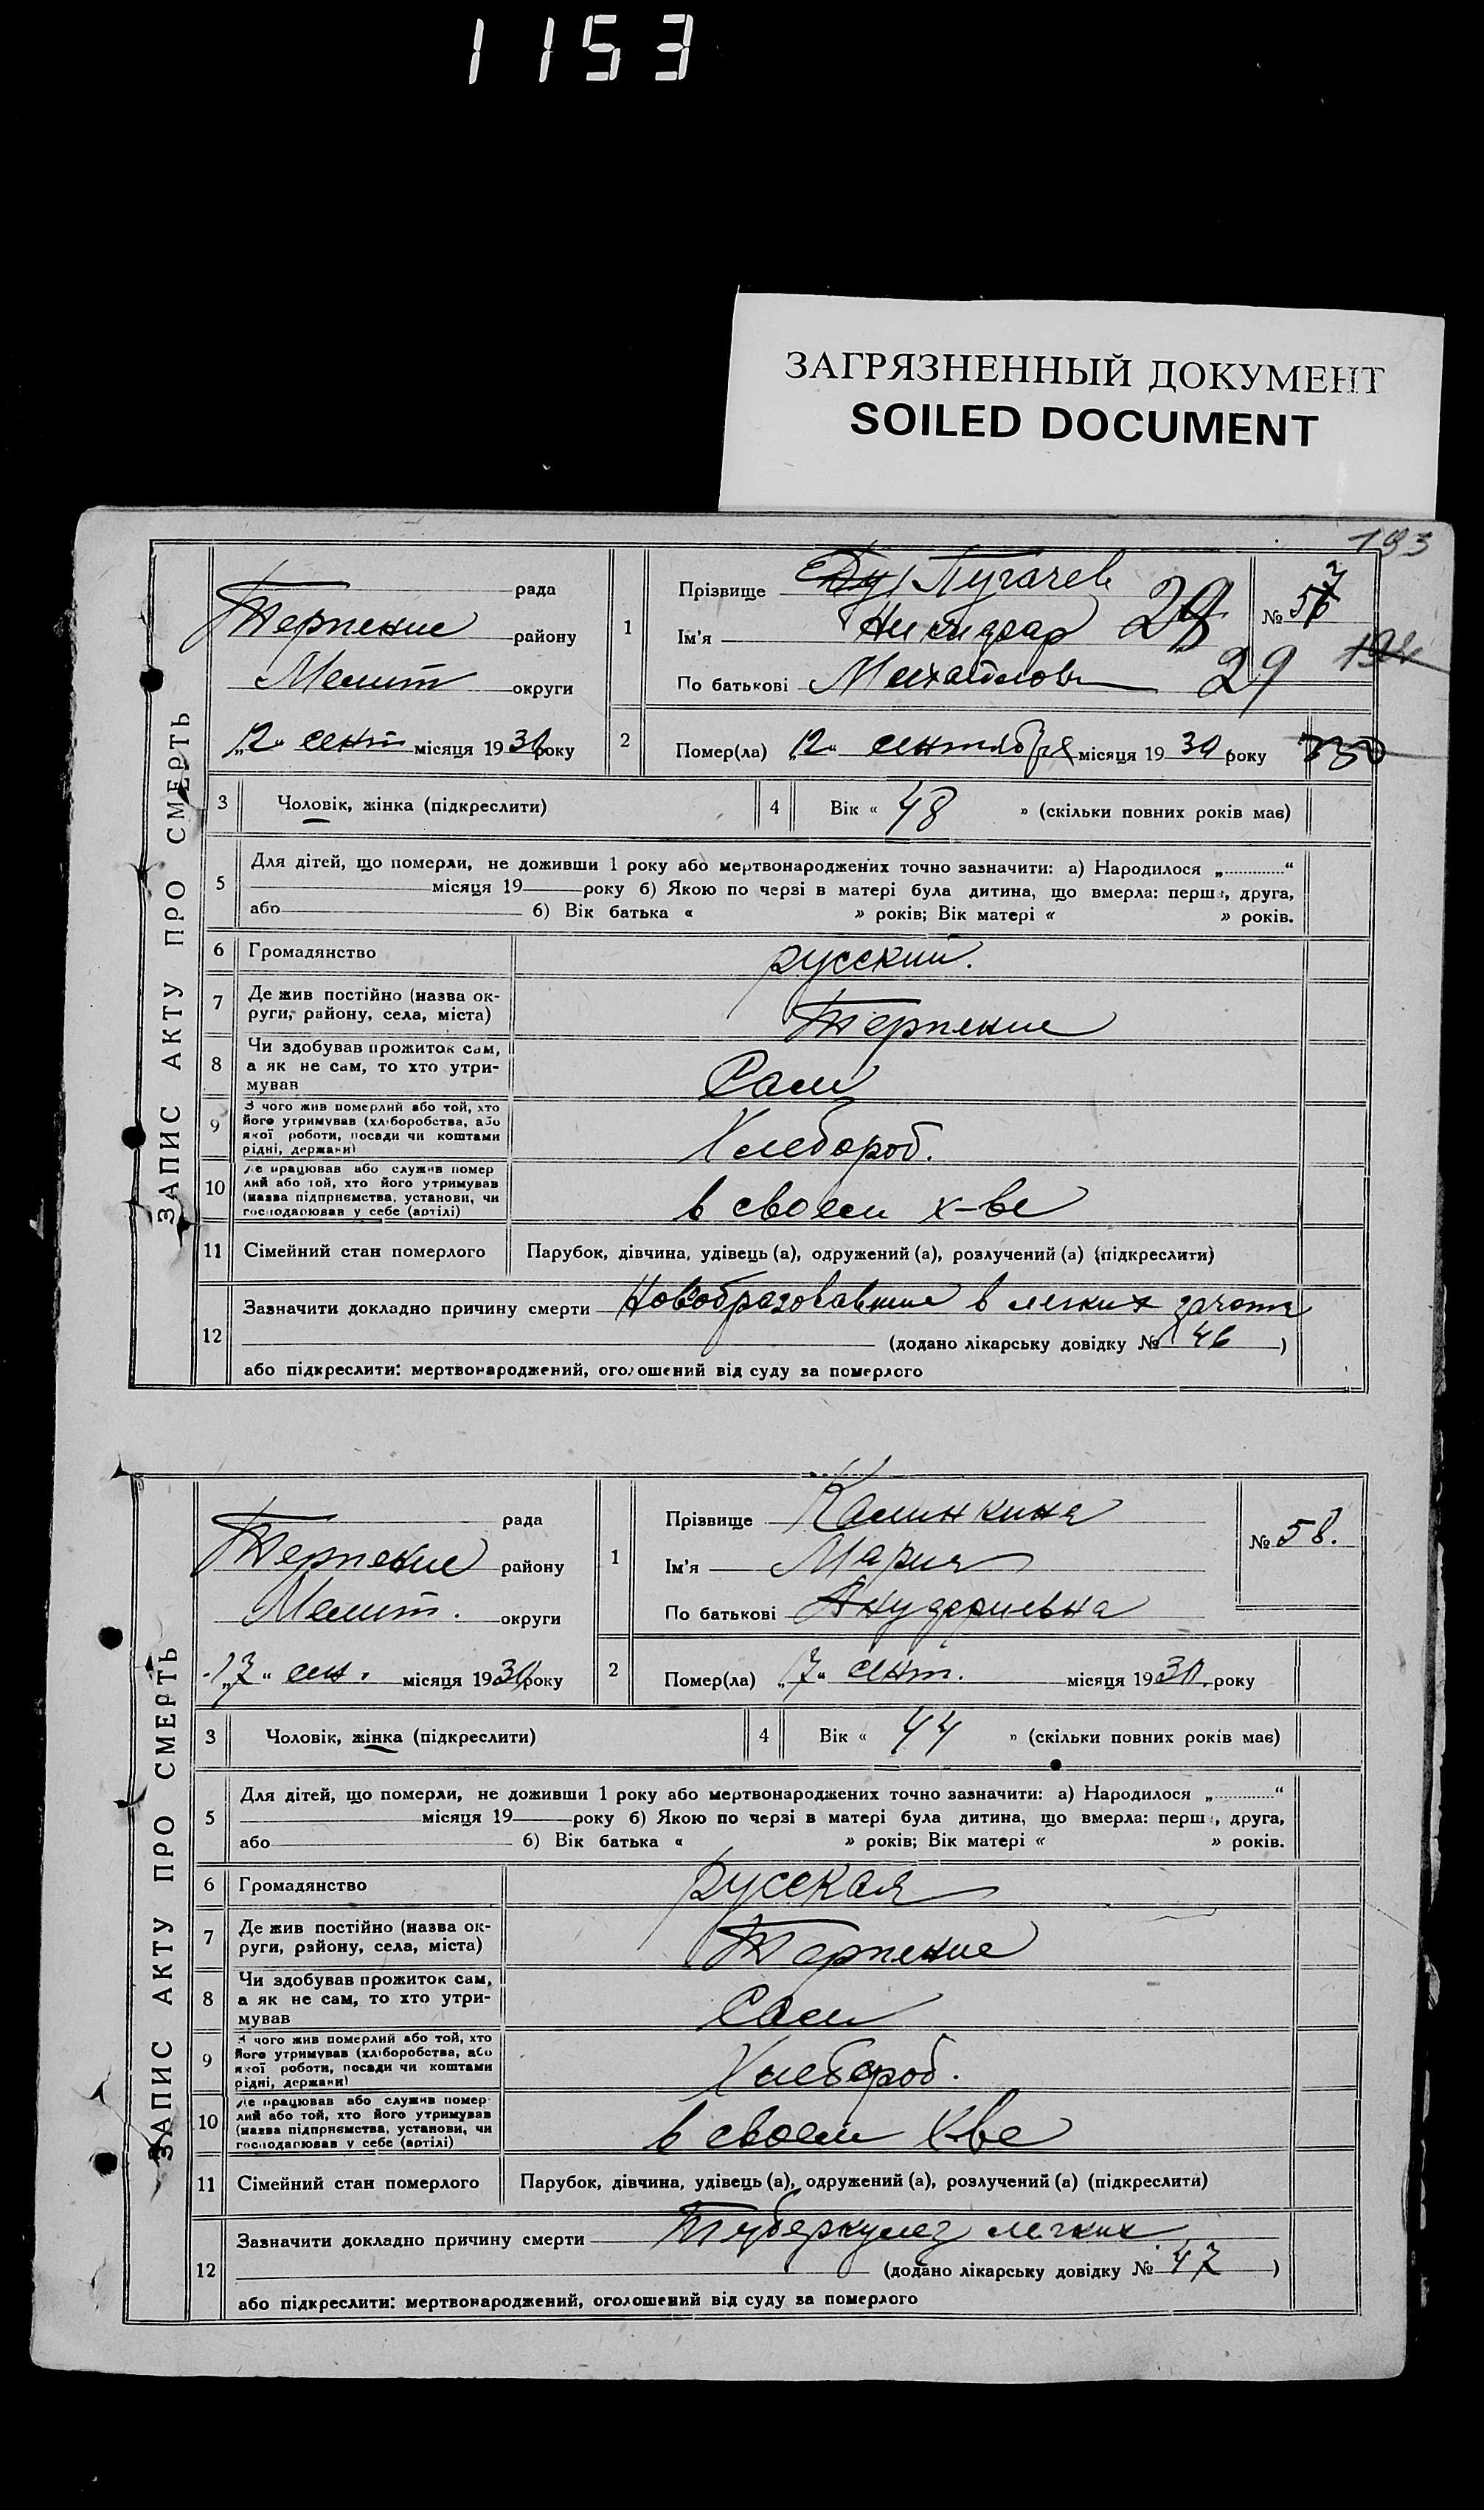 1153
ЗАГРЯЗНЕННЫЙ ДОКУМЕНТ
SOILED DOCUMENT
193
ЗАПИС АКТУ ПРО СМЕРТЬ
рада
Терпение району
Мелит округи
„12“ сент місяця 1930 року
1
Прізвище Пугачев
Ім'я
По батькові Михайлов
29
29
№ 57
194
2
Помер(ла) „12“ сентября місяця 1930 року
3
Чоловік, жінка (підкреслити)
4
Вік « 48 » (скільки повних років має)
5
Для дітей, що померли, не доживши 1 року або мертвонароджених точно зазначити: а) Народилося „ “
місяця 19 року б) Якою по черзі в матері була дитина, що вмерла: перша, друга,
або б) Вік батька « » років; Вік матері « » років.
6
Громадянство
русский.
7
Де жив постійно (назва ок-
руги, району, села, міста)
Терпение
8
Чи здобував прожиток сам,
а як не сам, то хто утри-
мував
Сам
9
З чого жив померлий або той, хто
його утримував (хліборобства, або
якої роботи, посади чи коштами
рідні, держави)
Хлебороб.
10
Де працював або служив помер
лий або той, хто його утримував
(назва підприємства, установи, чи
господарював у себе (артілі)
в своем х-ве
11
Сімейний стан померлого
Парубок, дівчина, удівець (а), одружений (а), розлучений (а) (підкреслити)
12
Зазначити докладно причину смерти Новообразовавшие в легких
(додано лікарську довідку № 46 )
або підкреслити: мертвонароджений, оголошений від суду за померлого
ЗАПИС АКТУ ПРО СМЕРТЬ
рада
Терпение району
Мелит. округи
„17“ сен. місяця 1930 року
1
Прізвище Калинкина
Ім'я Мария
По батькові
№ 58.
2
Помер(ла) „17“ сент. місяця 1930. року
3
Чоловік, жінка (підкреслити)
4
Вік « 44 » (скільки повних років має)
5
Для дітей, що померли, не доживши 1 року або мертвонароджених точно зазначити: а) Народилося „ “
місяця 19 року б) Якою по черзі в матері була дитина, що вмерла: перша, друга,
або б) Вік батька « » років; Вік матері « » років.
6
Громадянство
русская
7
Де жив постійно (назва ок-
руги, району, села, міста)
Терпение
8
Чи здобував прожиток сам,
а як не сам, то хто утри-
мував
Сам
9
З чого жив померлий або той, хто
його утримував (хліборобства, або
якої роботи, посади чи коштами
рідні, держави)
Хлебороб.
10
Де працював або служив помер
лий або той, хто його утримував
(назва підприємства, установи, чи
господарював у себе (артілі)
в своем х-ве
11
Сімейний стан померлого
Парубок, дівчина, удівець (а), одружений (а), розлучений (а) (підкреслити)
12
Зазначити докладно причину смерти Туберкулез легких
(додано лікарську довідку № 47 )
або підкреслити: мертвонароджений, оголошений від суду за померлого